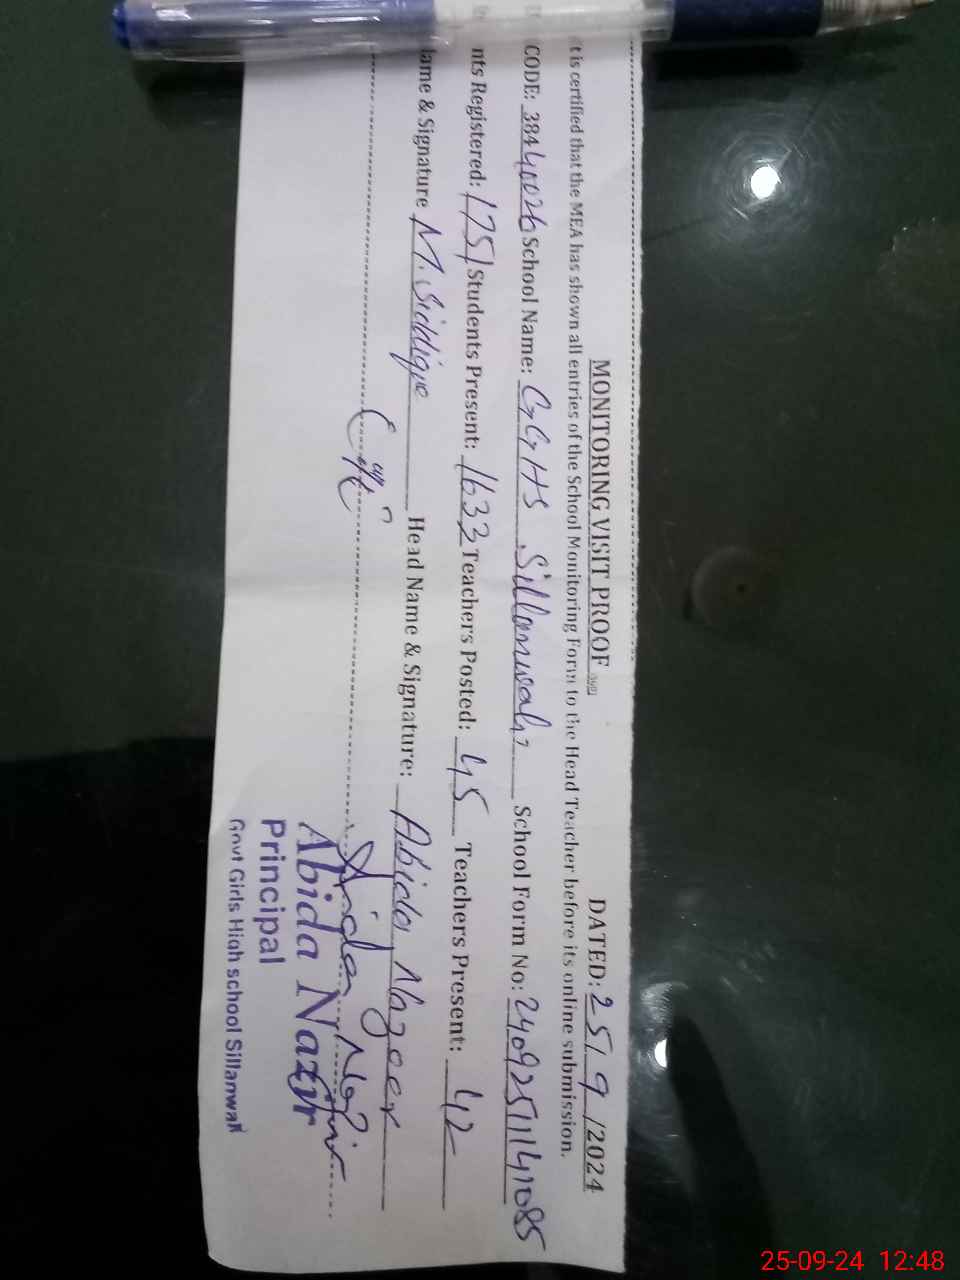 MONITORING VISIT PROOF DATED: 25/9/2024
t is certified that the MEA has shown all entries of the School Monitoring Form to the Head Teacher before its online submission.
CODE: 38440026 School Name: GGHS Sillanwali School Form No: 24092511141085
nts Registered: 1751 Students Present: 1633 Teachers Posted: 45 Teachers Present: 42
ame & Signature M. Siddique Head Name & Signature: Abida Nazeer
Abida Nazir
Principal
Govt Girls High school Sillanwali
25-09-24 12:48